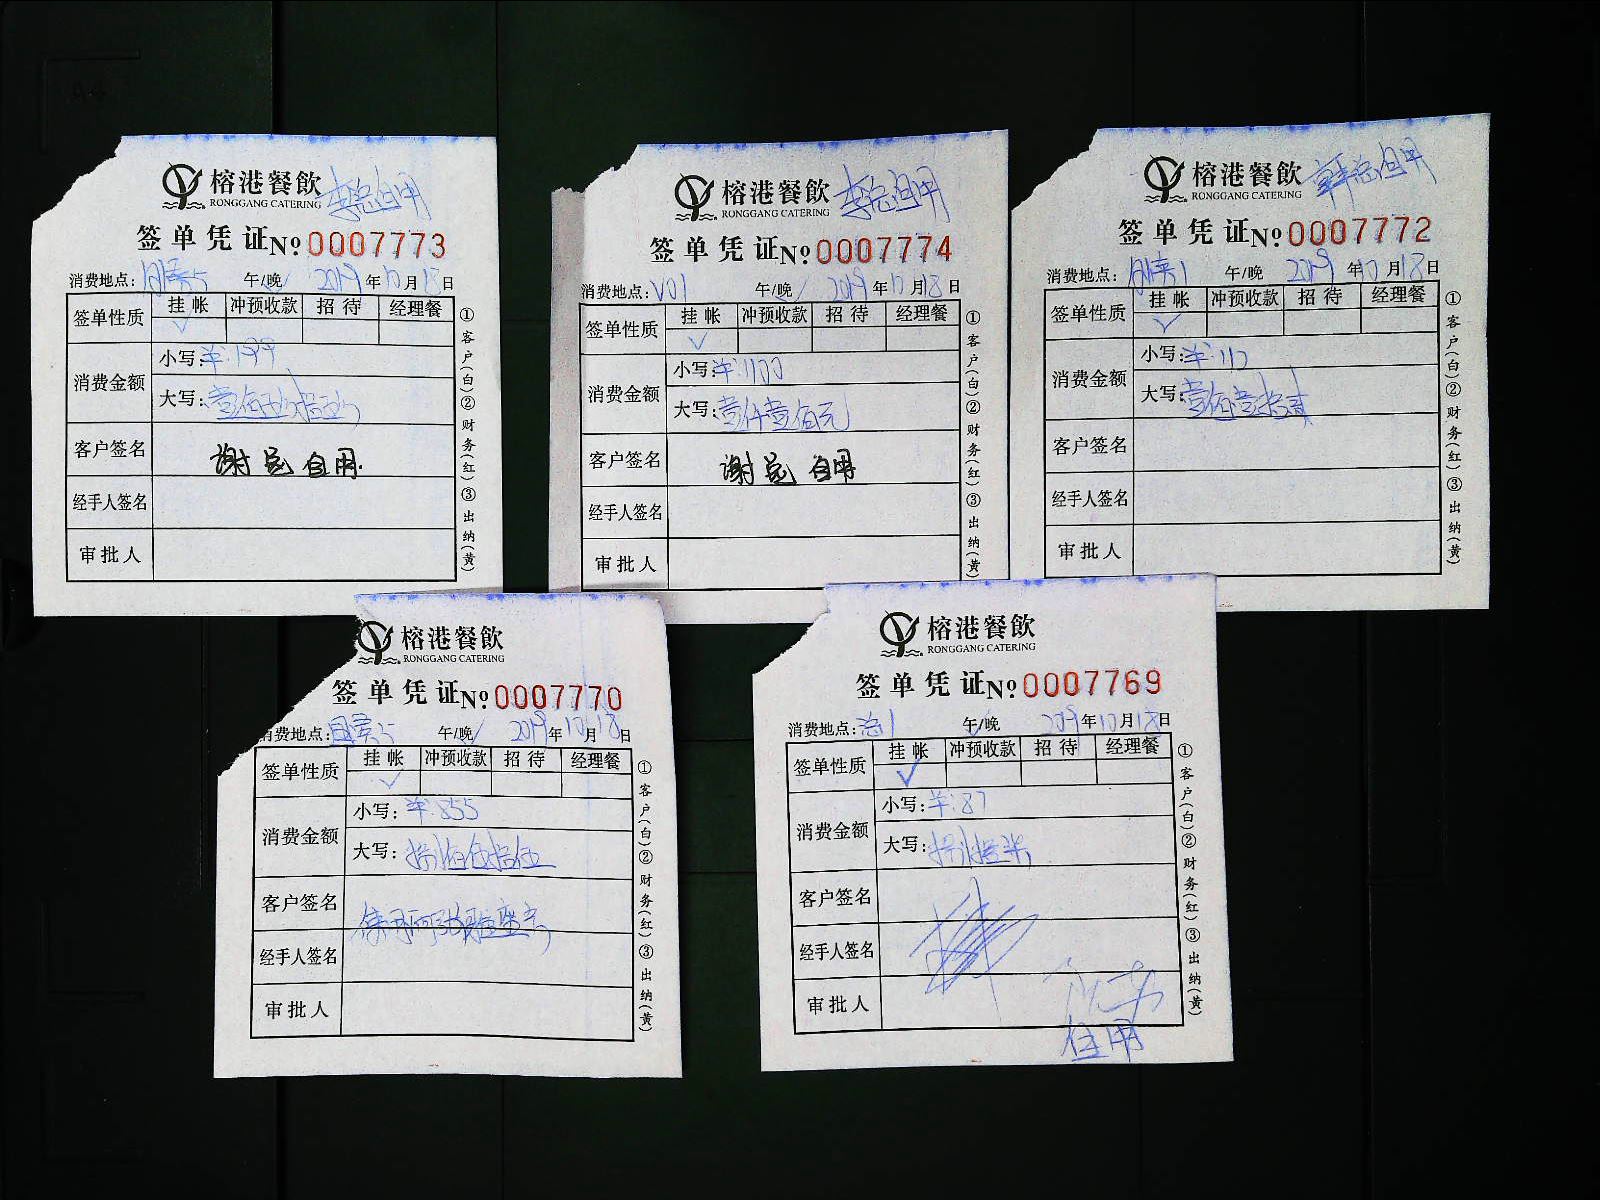 榕港餐飲
RONGGANG CATERING
签单凭证 № 0007773
消费地点: 午/晚 2019 年 10 月 18 日
签单性质 挂帐 冲预收款 招待 经理餐
✓
消费金额 小写:¥:199
大写:
客户签名 谢总 自用.
经手人签名
审批人
①客户(白)②财务(红)③出纳(黄)
榕港餐飲
RONGGANG CATERING
李总自用
签单凭证 № 0007774
消费地点: V01 午/晚 2019 年 10 月 18 日
签单性质 挂帐 冲预收款 招待 经理餐
✓
消费金额 小写:¥:1100
大写:壹仟壹佰元
客户签名 谢总 自用
经手人签名
审批人
①客户(白)②财务(红)③出纳(黄)
榕港餐飲
RONGGANG CATERING
签单凭证 № 0007772
消费地点: 午/晚 2019 年 10 月 18 日
签单性质 挂帐 冲预收款 招待 经理餐
✓
消费金额 小写:¥:110
大写:壹佰壹拾
客户签名
经手人签名
审批人
①客户(白)②财务(红)③出纳(黄)
榕港餐飲
RONGGANG CATERING
签单凭证 № 0007770
消费地点: 午/晚 2019 年 10 月 18 日
签单性质 挂帐 冲预收款 招待 经理餐
✓
消费金额 小写:¥:855
大写:捌佰伍拾伍
客户签名
经手人签名
审批人
①客户(白)②财务(红)③出纳(黄)
榕港餐飲
RONGGANG CATERING
签单凭证 № 0007769
消费地点: 午/晚 2019 年 10 月 18 日
签单性质 挂帐 冲预收款 招待 经理餐
✓
消费金额 小写:¥:87
大写:捌拾柒
客户签名
经手人签名
审批人
①客户(白)②财务(红)③出纳(黄)